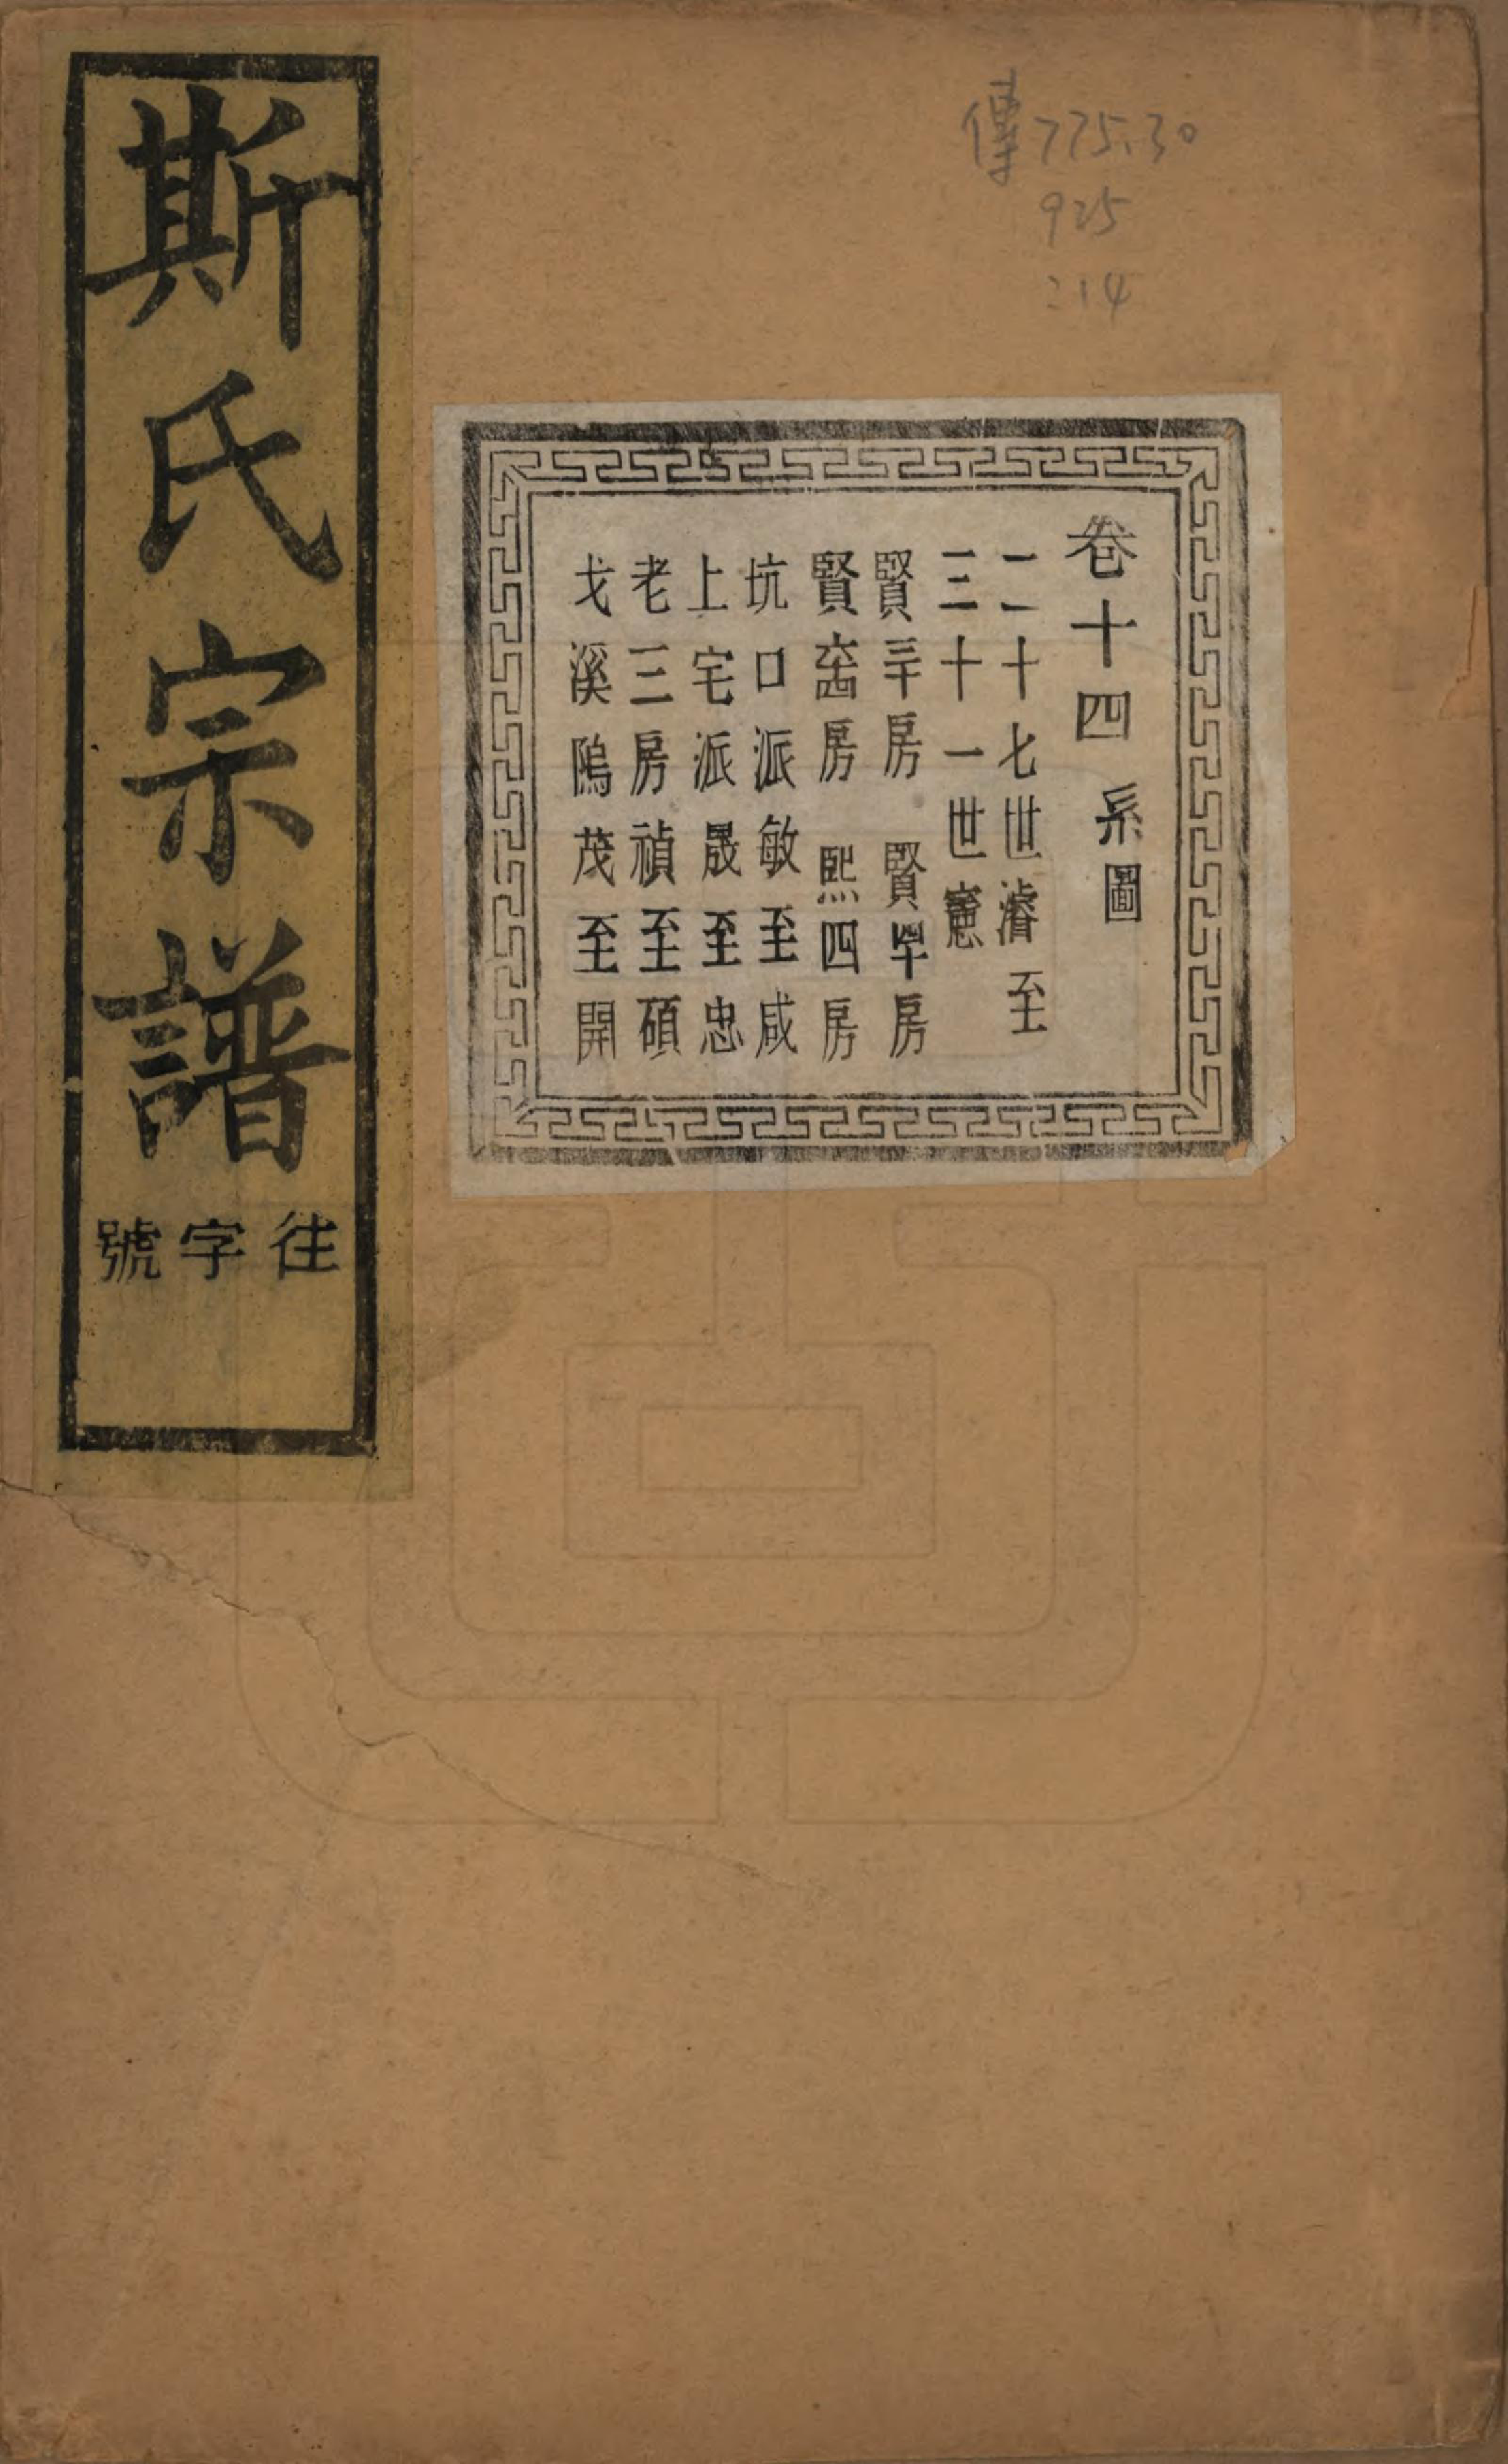 傳775.30
925
:14
卷十四 系圖
二十七世濬至
三十一世憲
賢三十房 賢四十房
賢 房 熙四房
坑口派敏至咸
上宅派晟至忠
老三房禎至碩
戈溪隖茂至開
斯氏宗譜
往字號